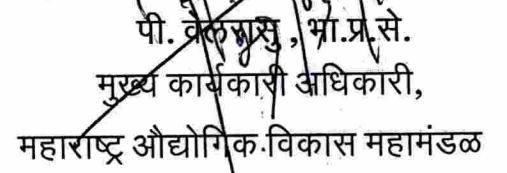 पी. वेलरासु , भा.प्र.से.
मुख्य कार्यकारी अधिकारी,
महाराष्ट्र औद्योगिक विकास महामंडळ